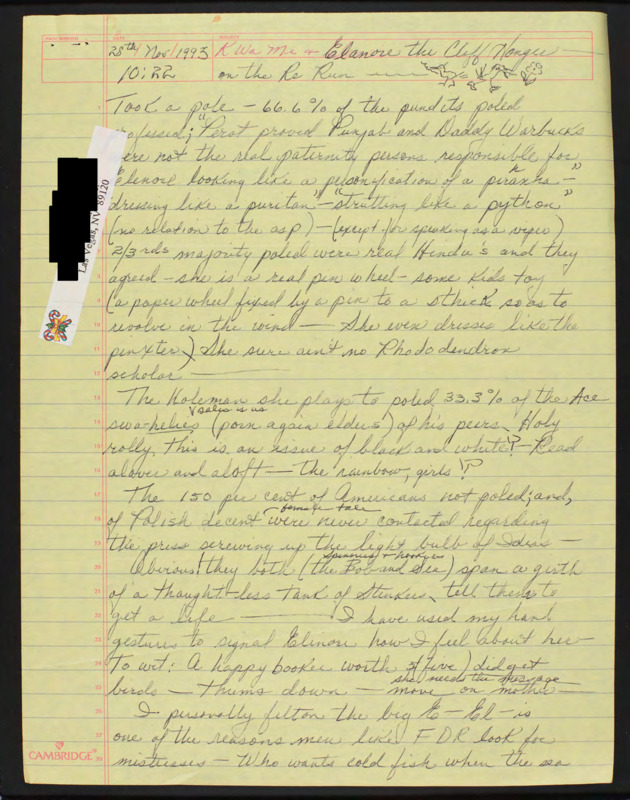 28th/Nov/1993 R Wa Me + Elanore the Cliff Hanger —
10:22 on the Re Run
Took a pole – 66.6% of the pundits poled
professed; "Perot proved Punjab and Daddy Warbucks
were not the real paternity persons responsible for
Elenore looking like a personification of a piranha –"
dressing like a puritan" – "strutting like a python"
(no relation to the asp) – (except for speaking as a viper)
2/3 rds majority poled were real Hindu's and they
agreed – she is a real pin wheel – some kids toy
(a paper wheel fixed by a pin to a stick so as to
revolve in the wind — She even dresses like the
pinxter) She sure ain't no Rhododendron
scholar —
The Holeman she plays to poled 33.3% of the Ace
sales is us
swa-helies (porn again elders) of his peers. Holy
rolly. This is an issue of black and white!? – Read
above and aloft — the rainbow, girls!?
The 150 per cent of Americans not poled; and,
female tale
of Polish decent were never contacted regarding
the press screwing up the light bulb of Ideas –
spinning + hooking
Obvious, they both (the Bob and Sue) span a girth
of a thought-less tank of stinkers, tell them to
get a life — I have used my hand
gestures to signal Elinore how I feel about her –
To wit: A happy booker worth 3 (five) did get
she needs the message
birds – thums down – move on mother –
I personally felt on the big E – El – is
one of the reasons men like FDR look for
mistresses – Who wants cold fish when the sea
Las Vegas, NV 89120
CAMBRIDGE